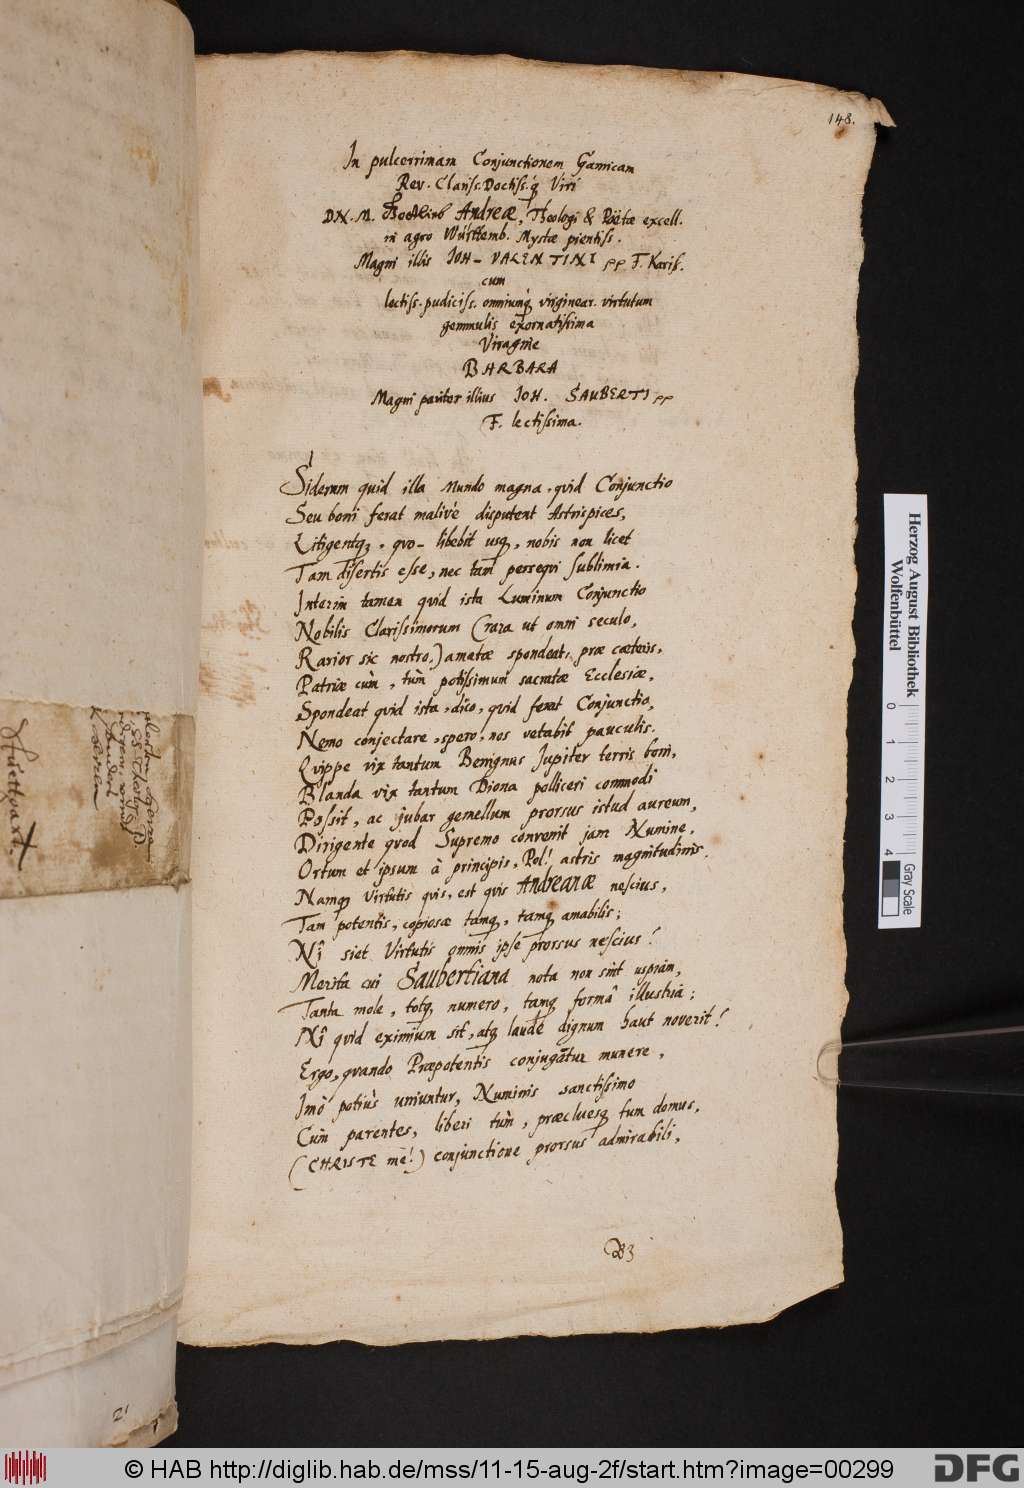 148.
In pulcerrimam Conjunctionem Gamicam
Rev. Clariss. Doctiss.q́ Viri
DN. M. Gottlieb Andreæ, Theologi & Poëtæ excell.
in agro Württemb. Mystæ pientiss.
Magni illis JOH- VALENTINI pp F. Kariss.
cum
lectiss. pudiciss. omniumq́ virginear. virtutum
gemmulis exornatissima
Viragine
BARBARA
Magni pariter illius JOH. SAUBERTI pp
F. lectissima.
Siderum quid illa Mundo magna, quid Conjunctio
Seu boni ferat malivè disputent Astrispices,
Litigentq₃, quo-libebit usq₃, nobis non licet
Tam disertis esse, nec tam persequi sublimia.
Interim tamen quid ista Luminum Conjunctio
Nobilis Clarissimorum (rara ut omni seculo,
Rarior sic nostro,) amatæ spondeat, præ cæteris,
Patriæ cùm, tùm potissimum sacratæ Ecclesiæ,
Spondeat quid ista, dico, quid ferat Conjunctio,
Nemo conjectare, spero, nos vetabit pauculis.
Quippe vix tantum Benignus Jupiter terris boni,
Blanda vix tantum Diona polliceri commodi
Possit, ac jubar gemellum prorsus istud aureum,
Dirigente quod Supremo convenit jam Numine,
Ortum et ipsum à principis, Pol! astris magnitudinis.
Namq₃ Virtutis quis, est quis Andreanæ nescius,
Tam potentis, copiosæ tamq₃, tamq₃ amabilis;
Nî siet Virtutis omnis ipse prorsus nescius!
Merita cui Saubertiana nota non sint uspiam,
Tanta mole, totq₃ numero, tamq₃ formâ illustria;
Nî quid eximium sit, atq₃ laude dignum haut noverit!
Ergo, quando Præpotentis conjugātur munere,
Imò potiùs uniuntur, Numinis sanctissimo
Cùm parentes, liberi tùm, præcluesq₃ tum domus,
(CHRISTE mê!) conjunctione prorsus admirabili,
Stuettgart.
Herzog August Bibliothek
Wolfenbüttel
0 1 2 3 4
Gray Scale
© HAB http://diglib.hab.de/mss/11-15-aug-2f/start.htm?image=00299
DFG